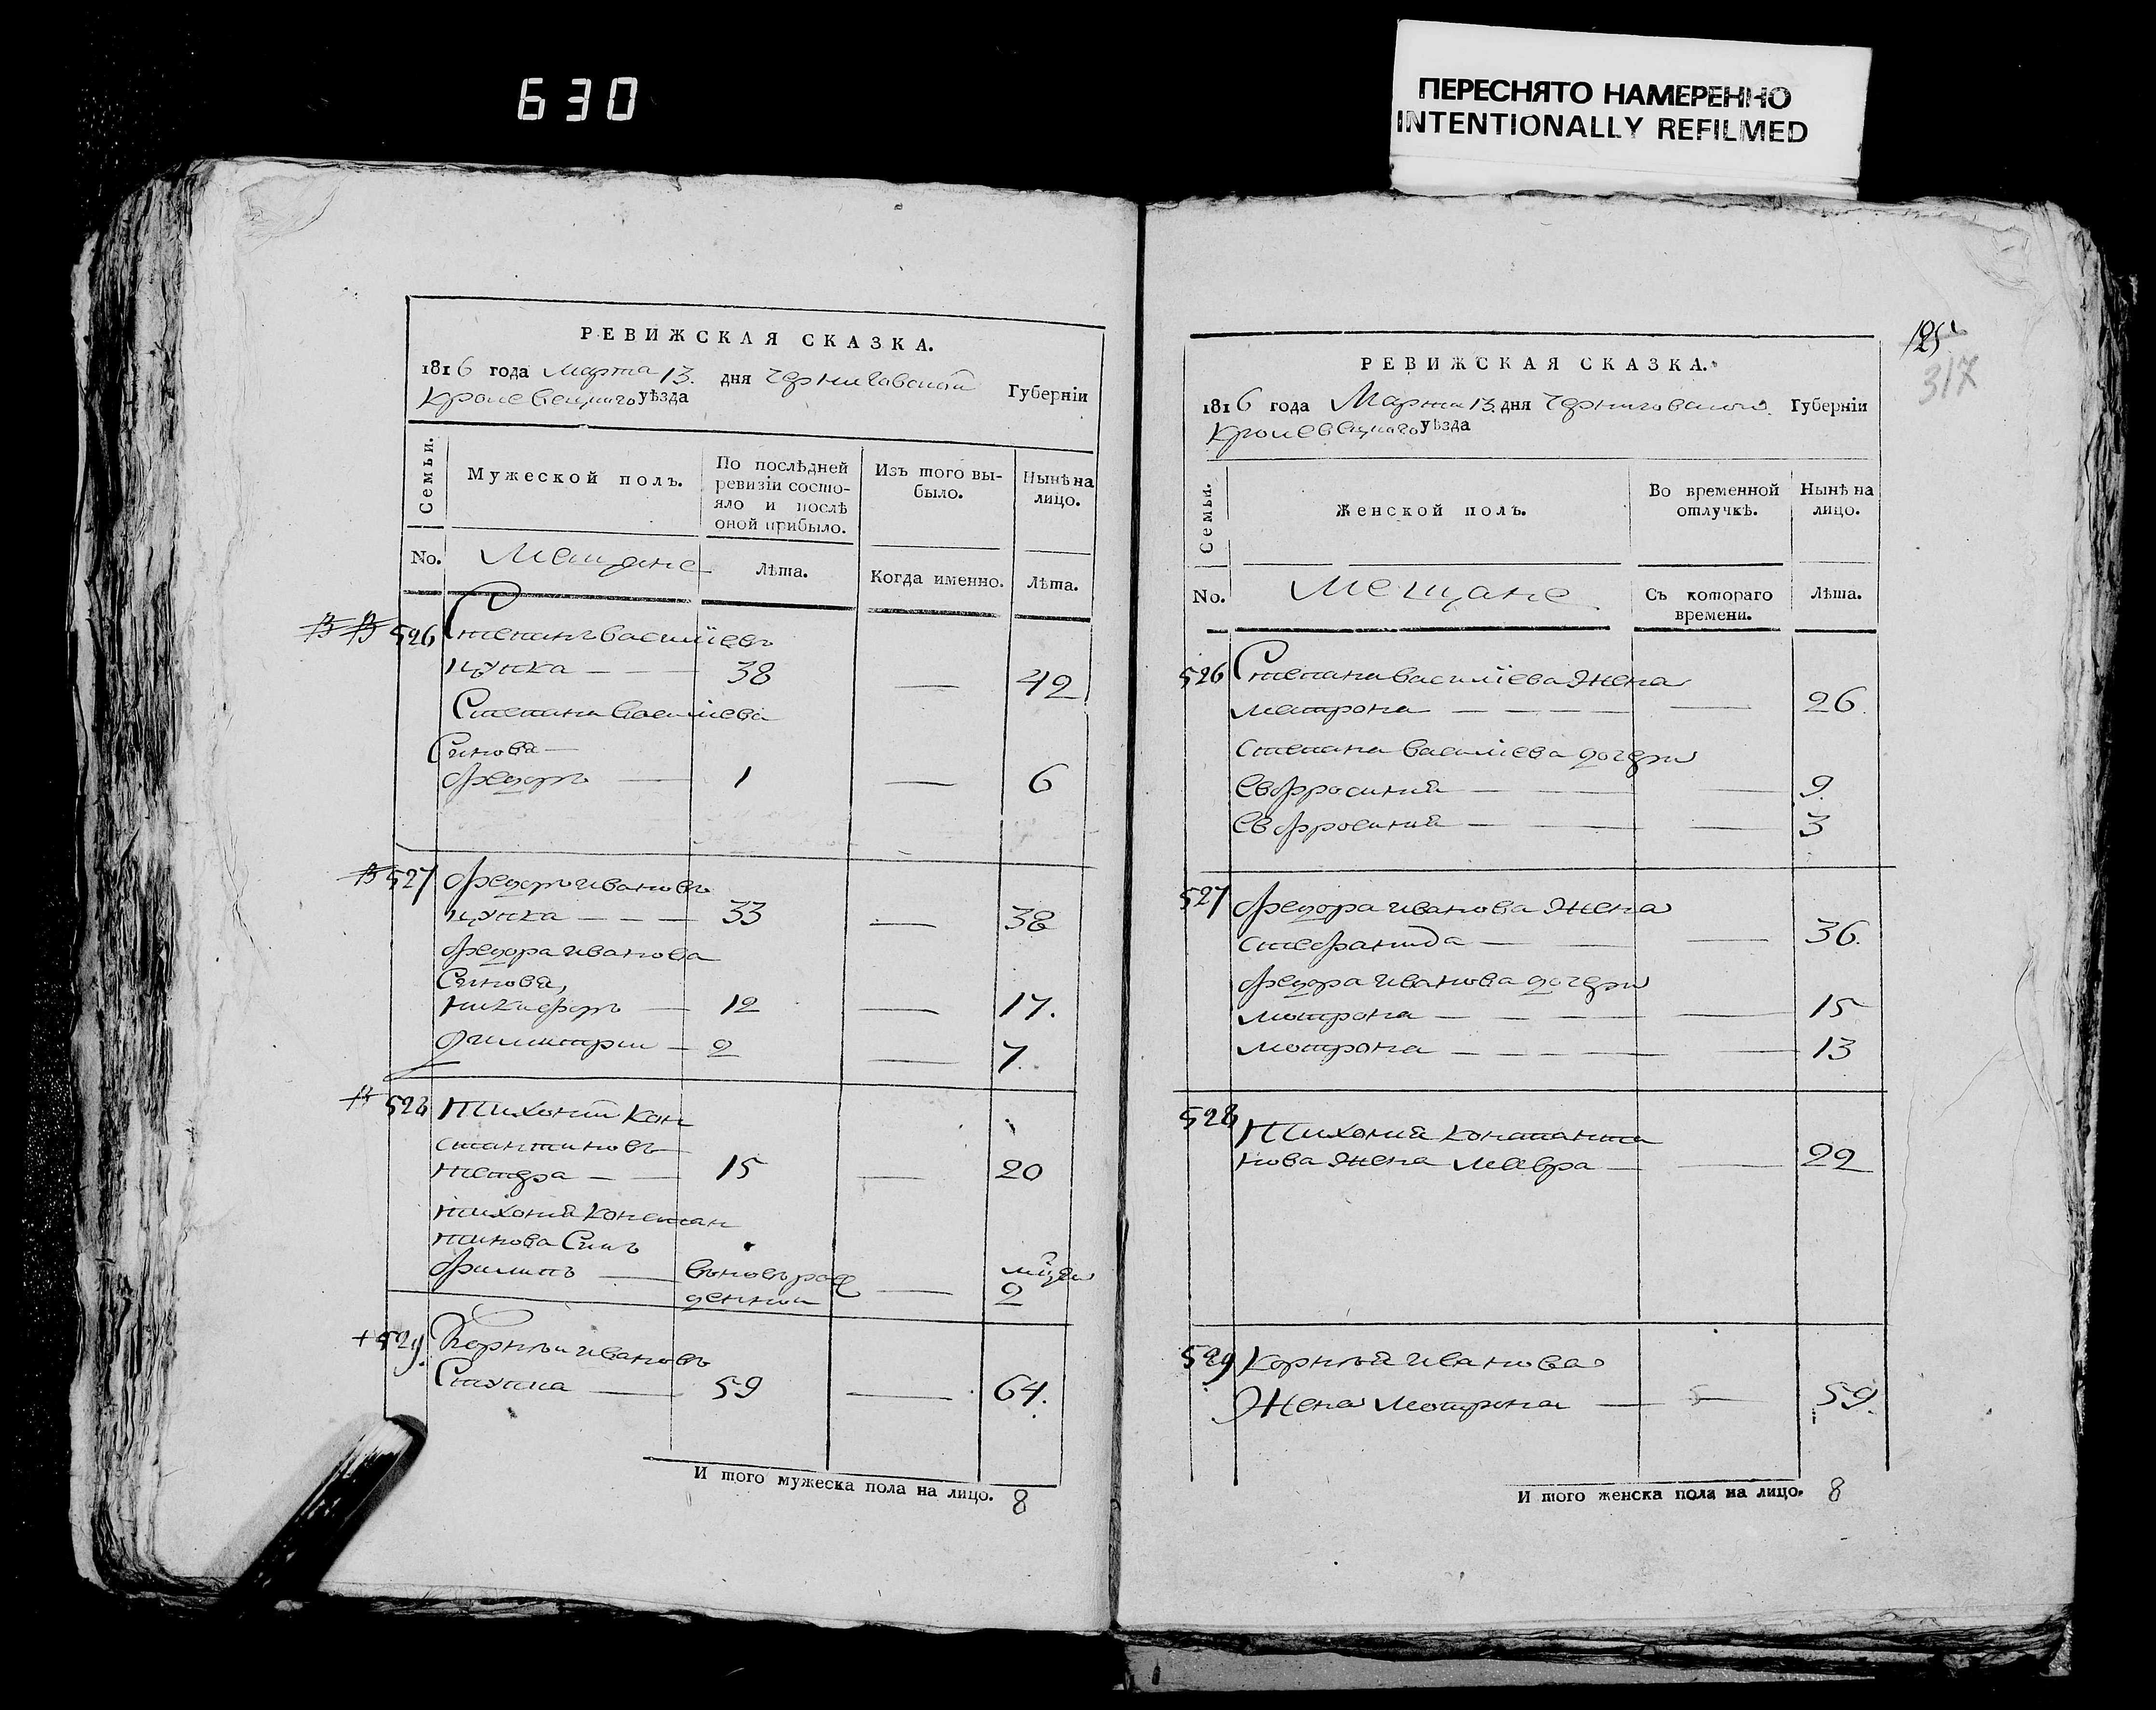 630
ПЕРЕСНЯТО НАМЕРЕННО
INTENTIONALLY REFILMED
РЕВИЖСКАЯ СКАЗКА.
1816 года Марта 13. дня Черниговской Губерніи
Кролевецкаго уѣзда
Семьи.
Мужеской полъ.
По послѣдней
ревизіи состо-
яло и послѣ
оной прибыло.
Изъ того вы-
было.
Нынѣ на
лицо.
No.
Мещане
Лѣта.
Когда именно.
Лѣта.
526 Степанъ Василіевъ
Цупка 38 — 42
Степана Василіева
Синова
Федоръ 1 — 6
527 Федоръ Ивановъ
Цупка 33 — 38
Федора Иванова
Синова,
Никифоръ 12 — 17.
Димитрии 2 — 7.
528 Тихоній Кон
стантиновъ
15 — 20
Тихонія Констан
тинова Синъ
Филипъ — вновьрож
денній — 2
+ 529. Корнѣи Ивановъ
Ступка 59 — 64.
И того мужеска пола на лицо. 8
125
317
РЕВИЖСКАЯ СКАЗКА.
1816 года Марта 13. дня Черниговской Губерніи
Кролевецкаго уѣзда
Семьи.
Женской полъ.
Во временной
отлучкѣ.
Нынѣ на
лицо.
No.
Мещане
Съ котораго
времени.
Лѣта.
526 Степана Василіева Жена
Матрона — 26.
Степана Василіева дочери
Евфросинія — 9.
Евфросинія — 3
527 Федора Иванова Жена
Стефанида — 36.
Федора Иванова дочери
Мотрона — 15
Мотрона — 13
528 Тихонія Константи
нова Жена Мавра — 22
529 Корнѣя Иванова
Жена Мотрона — 59.
И того женска пола на лицо. 8